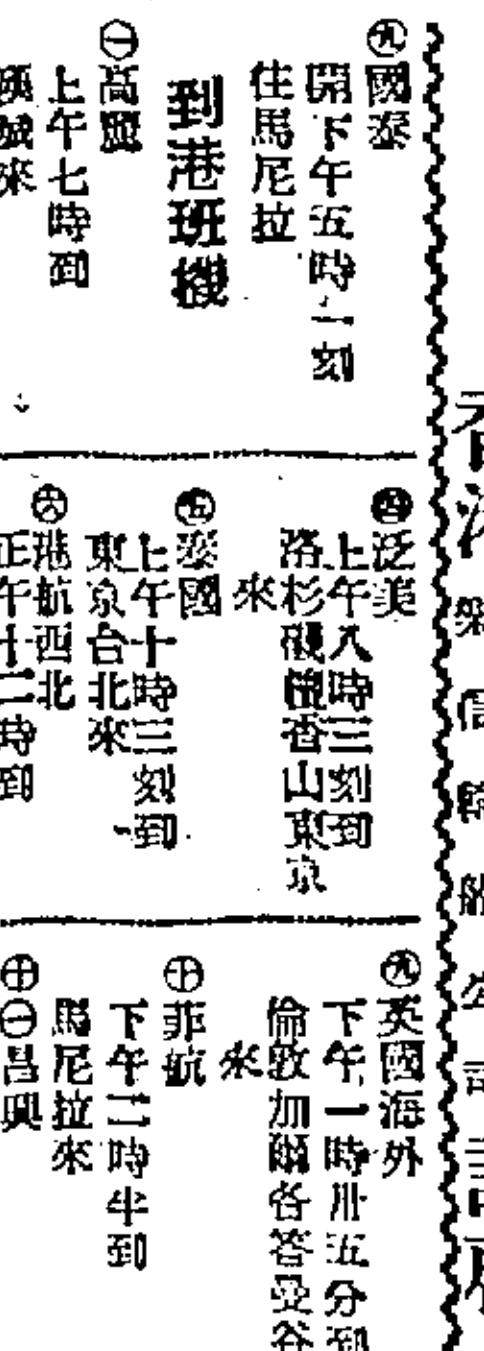 ㊈國泰
開下午五時一刻
往馬尼拉
到港班機
㊀高麗
上午七時到
漢城來
㊃泛美
上午八時三刻到
洛杉磯檀香山東京
來
㊄泰國
上午十時三刻到
東京台北來
㊅港航西北
正午十二時到
㊈英國海外
下午一時卅五分到
倫敦加爾各答曼谷
來
㊉菲航
下午二時半到
馬尼拉來
㊉㊀昌興